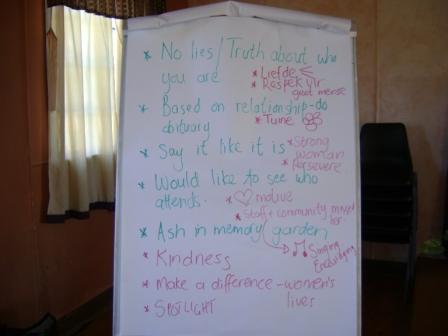 * No lies / Truth about who
you are
* Liefde
* Respek vir
goot mense
* Based on relationship - do
obituary
* Tuine
* Say it like it is
* Strong
woman
Persevere
* Would like to see who
attends.
* motive
* Staff + community missed
her.
* Ash in memory garden
Singing
Encouraging
* Kindness
* Make a difference - women's
lives
* SPOTLIGHT